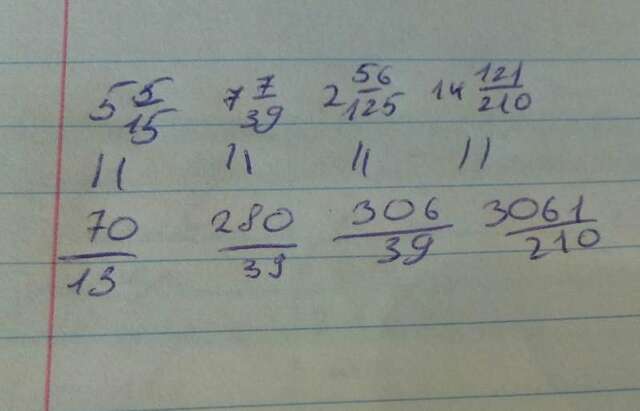 5 5/15 7 7/39 2 56/125 14 121/210
|| || || ||
70/13 280/39 306/39 3061/210